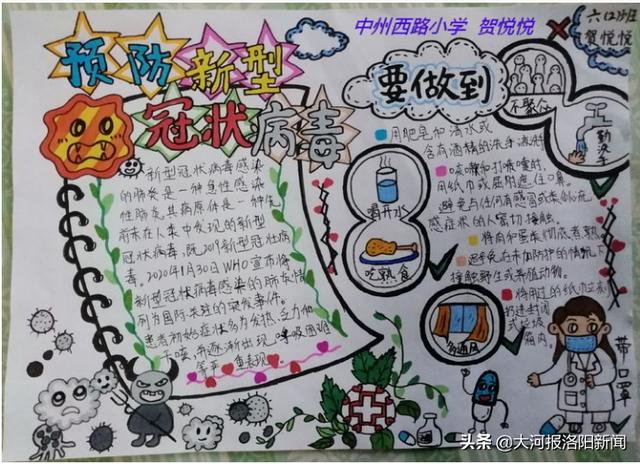 中州西路小学 贺悦悦
六(2)班
贺悦悦
预防新型
冠状病毒
新型冠状病毒感染
的肺炎是一种急性感染
性肺炎,其病原体是一种先
前未在人类中发现的新型
冠状病毒,既2019新型冠状病
毒。2020年1月30日WHO宣布将
新型冠状病毒感染的肺炎疫情
列为国际关注的突发事件。
患者初始症状多为发热、乏力和
干咳,并逐渐出现呼吸困难
等严重表现。
要做到
不聚众
勤洗手
用肥皂和清水或
含有酒精的洗手液洗手
咳嗽和打喷嚏时,
用纸巾或屈肘遮住口鼻。
避免与任何有感冒或类似流
感症状的人密切接触。
将肉和蛋类彻底煮熟
避免在未加防护的情况下
接触野生或养殖动物。
将用过的纸巾立刻
扔进封闭
式垃圾
箱内。
喝开水
吃熟食
多通风
带口罩
头条 @大河报洛阳新闻